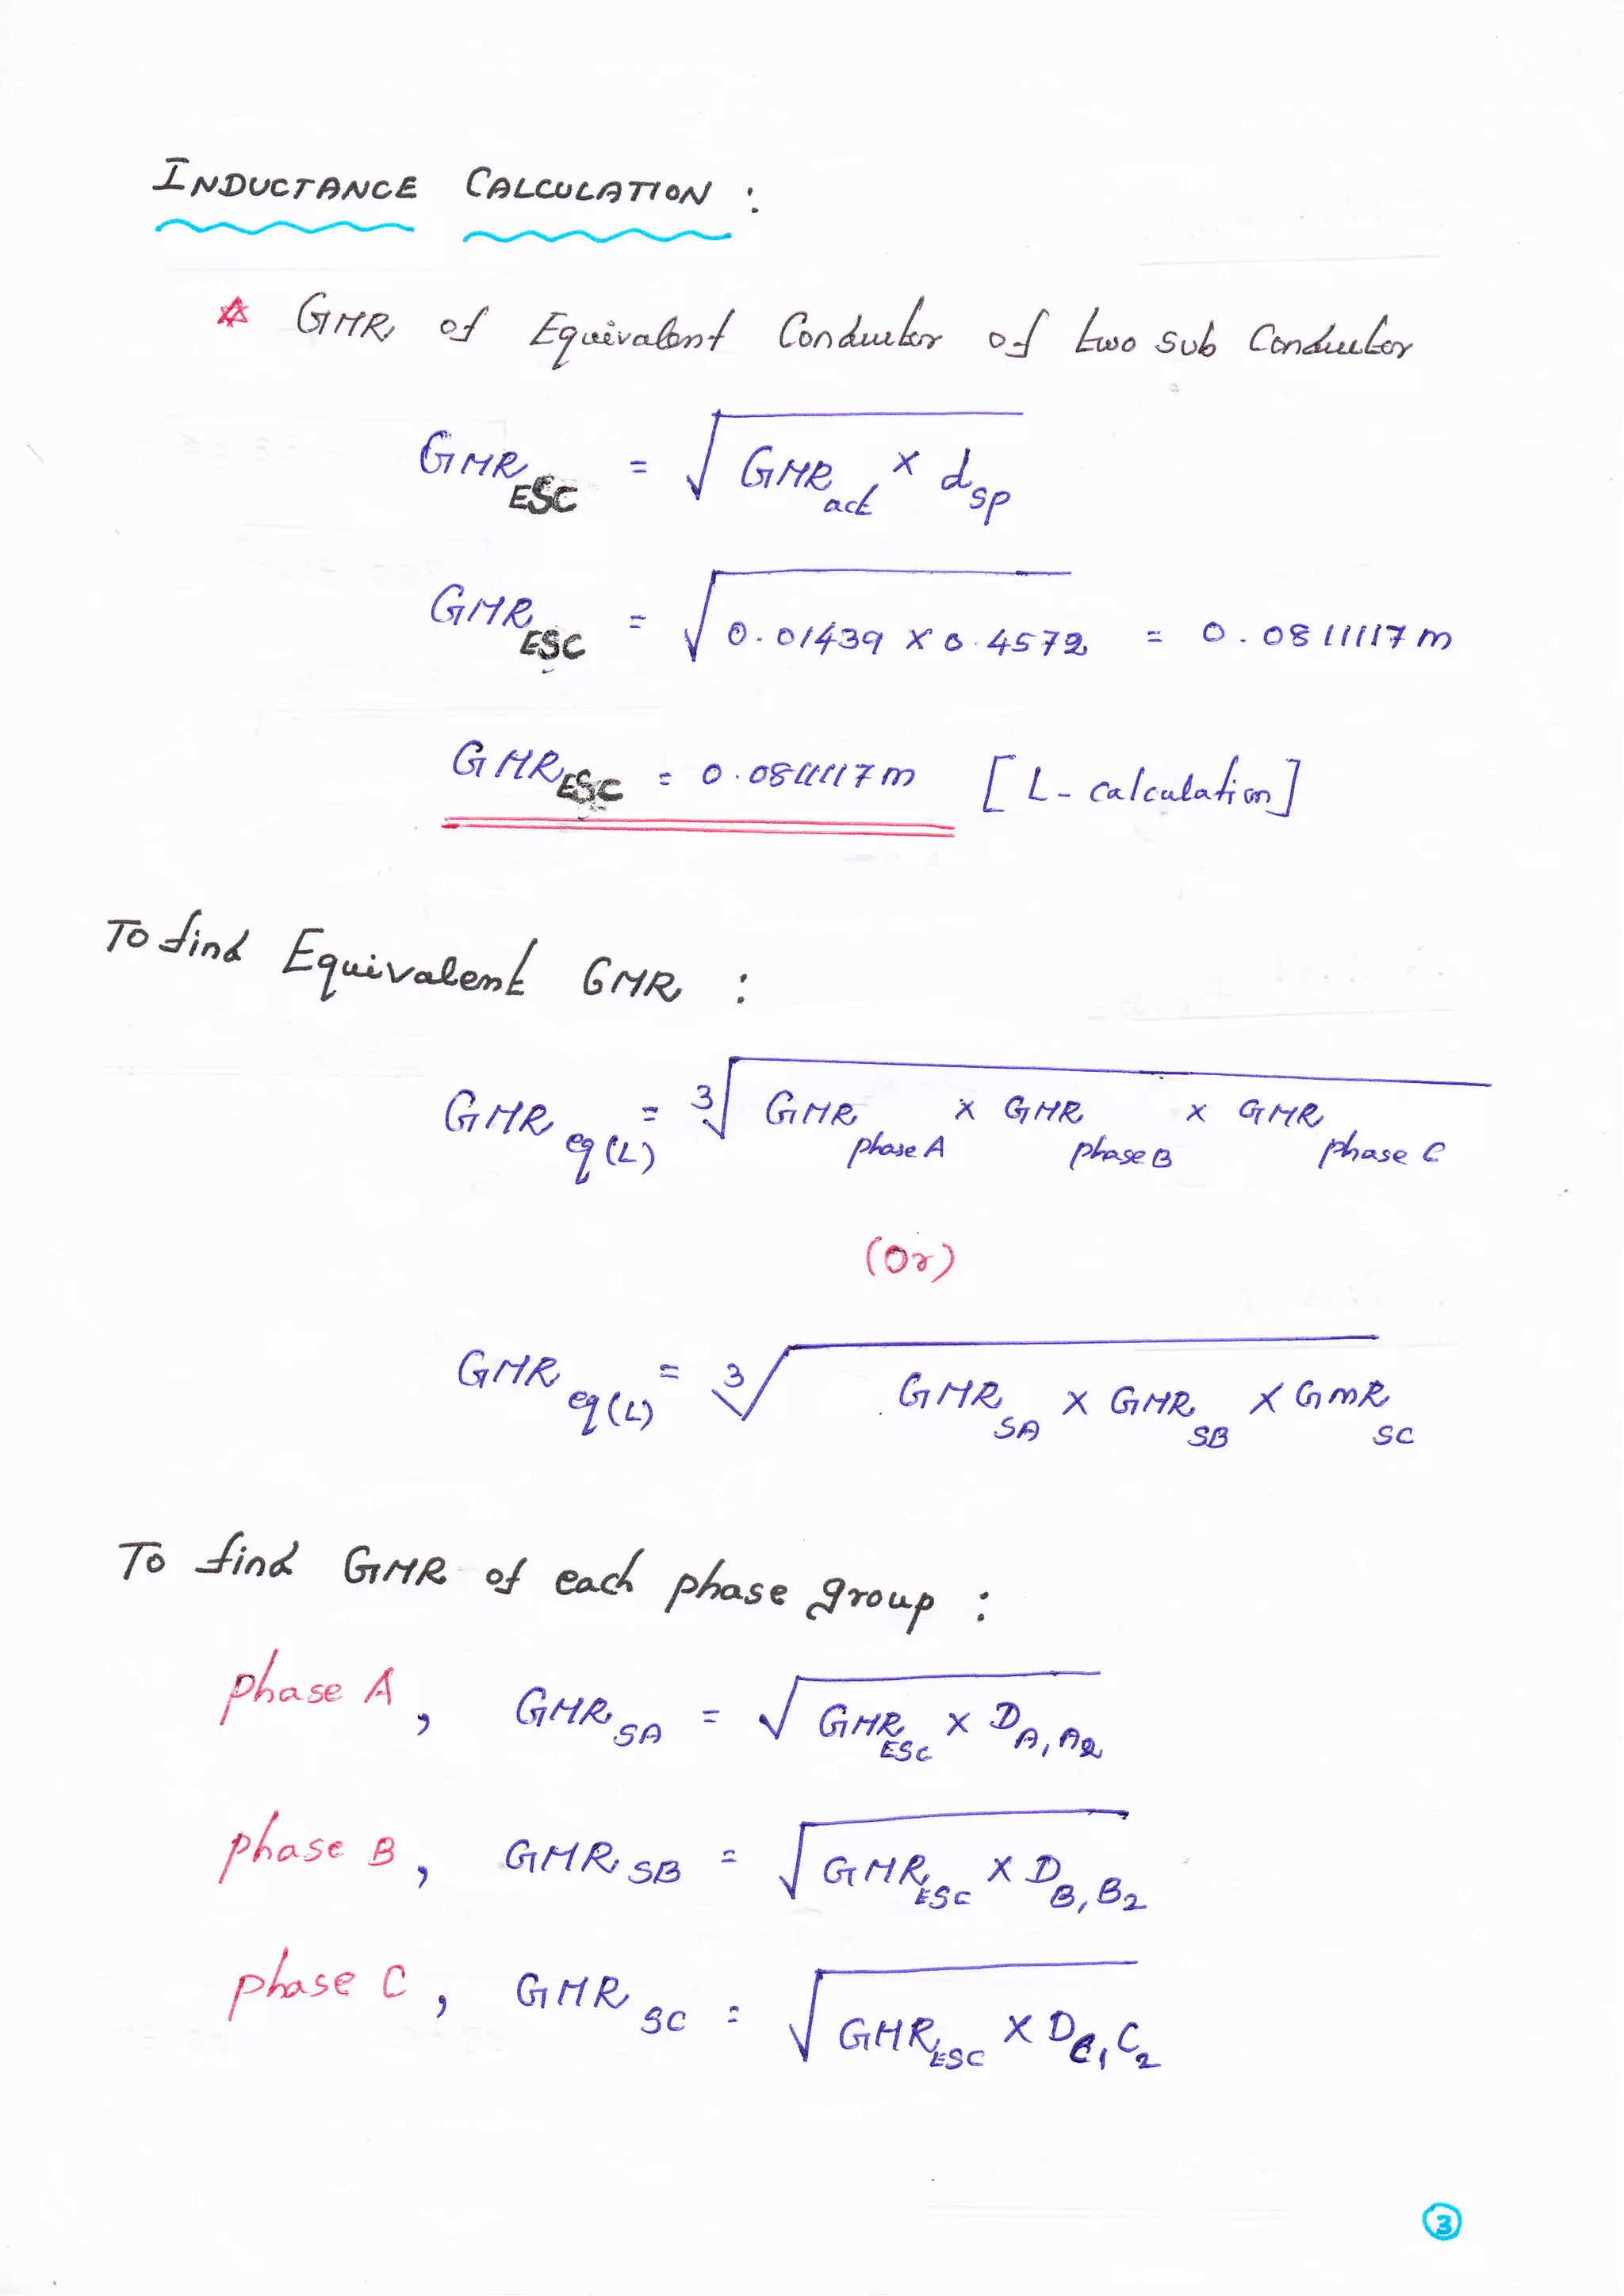 INDUCTANCE CALCULATION :
* GMR of Equivalent Conductor of two sub Conductor
GMR_ESC = √(GMR_act × d_sp)
GMR_ESC = √(0.01439 × 0.4572) = 0.0811117 m
GMR_ESC = 0.081117 m [L - calculation]
To find Equivalent GMR :
GMR_eq(L) = ³√(GMR_phase A × GMR_phase B × GMR_phase C)
(Or)
GMR_eq(L) = ³√(GMR_SA × GMR_SB × GMR_SC)
To find GMR of each phase group :
phase A , GMR_SA = √(GMR_ESC × D_A₁A₂)
phase B , GMR_SB = √(GMR_ESC × D_B₁B₂)
phase C , GMR_SC = √(GMR_ESC × D_C₁C₂)
3